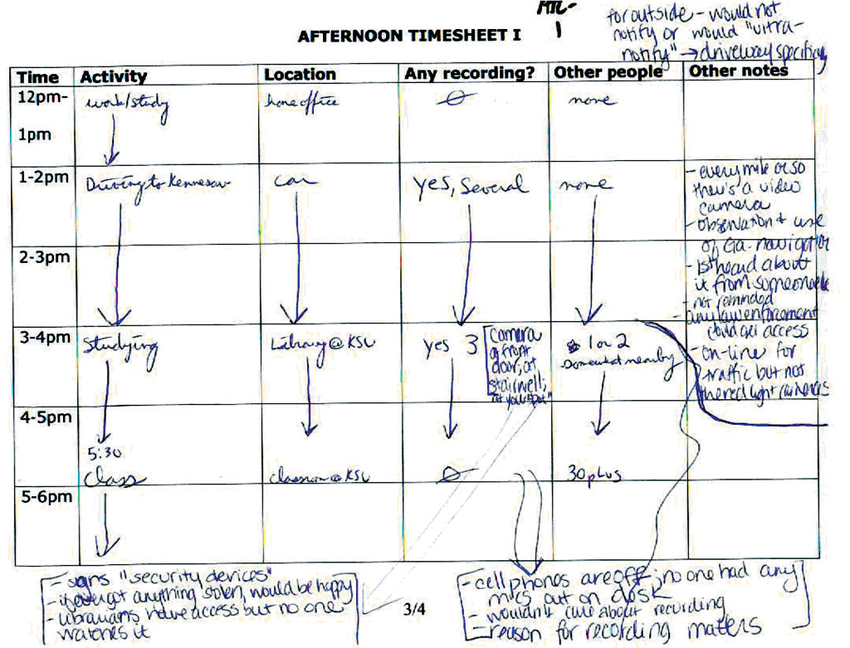 AFTERNOON TIMESHEET I
MTL-
1
for outside - would not
notify or would "ultra-
notify" → driveway specifically
Time Activity Location Any recording? Other people Other notes
12pm-
1pm
work/study home office Ø none
1-2pm
Driving to Kennesaw car yes, several none
- every mile or so
there's a video
camera
- observation + use
of Ga. navigator
- 1st heard about
it from someone else
- not reminded
- any law enforcement
could get access
- on-line for
traffic but not
the red light cameras
2-3pm
3-4pm
Studying Library @ KSU yes 3 1 or 2
somewhat nearby
[camera
@ front
door, at
stairwell,
"at your spot"
4-5pm
5:30
Class classroom @ KSU Ø 30 plus
5-6pm
- signs "security devices"
- if ever got anything stolen, would be happy
- librarians have access but no one
watches it
3/4
- cell phones are off; no one had any
mics out on desk
- wouldn't care about recording
- reason for recording matters